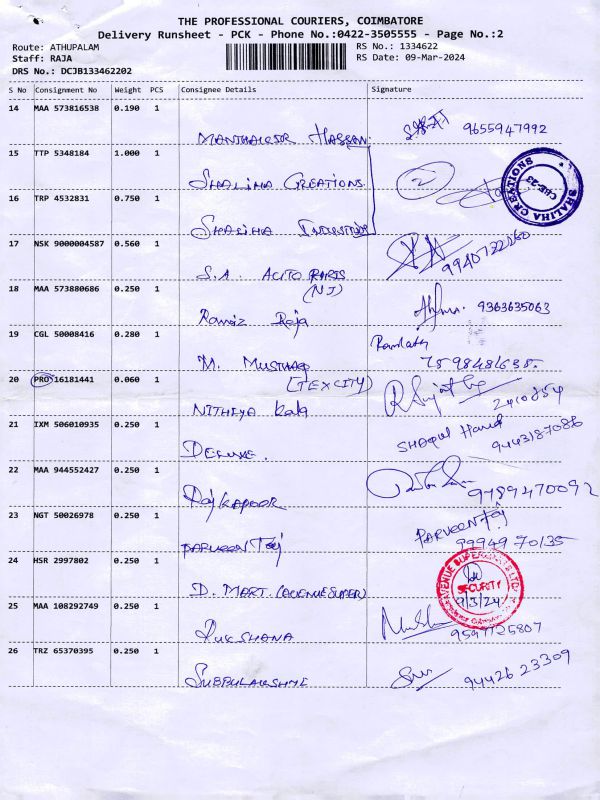 THE PROFESSIONAL COURIERS, COIMBATORE
Delivery Runsheet - PCK - Phone No.:0422-3505555 - Page No.:2
Route: ATHUPALAM RS No.: 1334622
Staff: RAJA RS Date: 09-Mar-2024
DRS No.: DCJB133462202
S No Consignment No Weight PCS Consignee Details Signature
14 MAA 573816538 0.190 1
Hassan. 9655947992
15 TTP 5348184 1.000 1
Shaliha Creations 2
SHALIHA CREATIONS CBE-23
16 TRP 4532831 0.750 1
Shaliha
17 NSK 9000004587 0.560 1
S.A. AUTO PARTS
(NJ)
18 MAA 573880686 0.250 1
Ramiz Raja 9363635063
19 CGL 50008416 0.280 1
M. Mushtaq
20 PRO 16181441 0.060 1
(TEXCITY)
NITHIYA Kala 2410854
21 IXM 506010935 0.250 1
Deluxe. 9443187086
22 MAA 944552427 0.250 1
Rajkapoor 9789470092
23 NGT 50026978 0.250 1
PARVEEN Taj PARVEEN Taj
99949 70135
24 HSR 2997802 0.250 1
D. MART. (AVENUE SUPER) SECURITY
9/3/24
25 MAA 108292749 0.250 1
Rukshana 9597125807
26 TRZ 65370395 0.250 1
Subbulakshmi 94426 23309